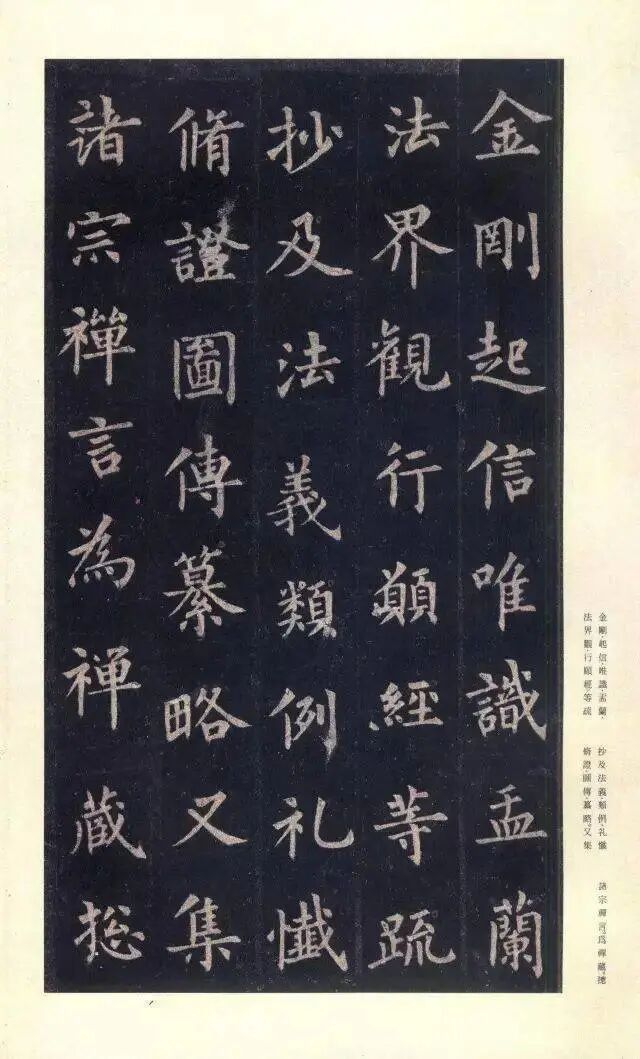 金剛起信唯識盂蘭
法界觀行願經等疏
抄及法義類例礼懺
脩證圖傳纂略又集
諸宗禪言為禅藏揔
金剛·起信·唯識·盂蘭·
法界觀·行願經等疏
抄及法義類例·礼懺
脩證·圖傳·纂略。又集
諸宗禪言。爲禪藏。揔